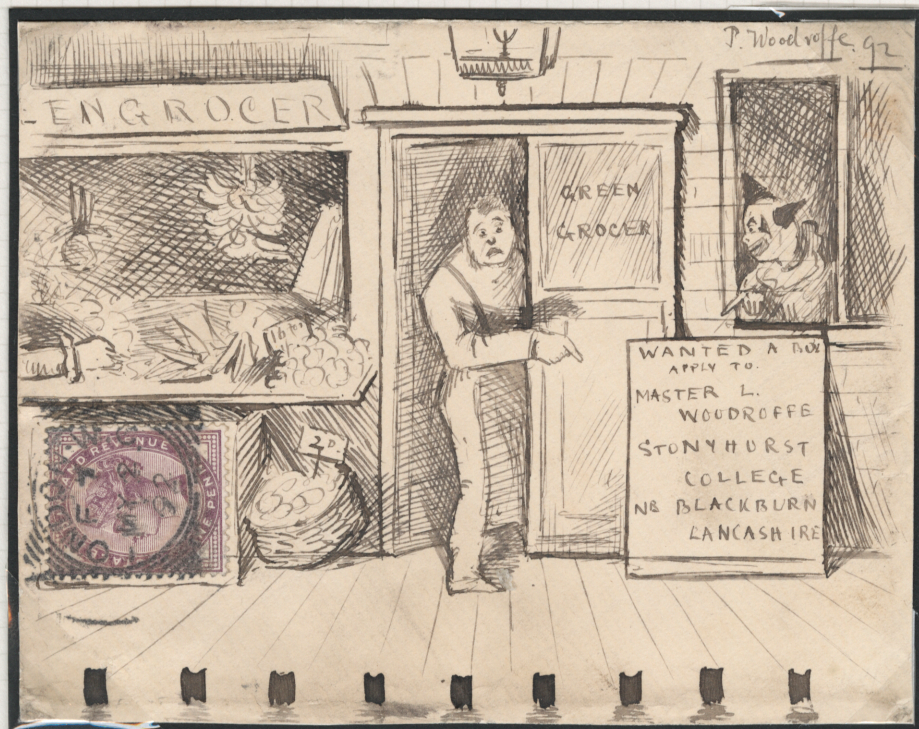 P. Woodroffe. 92
ENGROCER
GREEN
GROCER
2D
WANTED A BOY
APPLY TO.
MASTER L.
WOODROFFE
STONYHURST
COLLEGE
NR BLACKBURN
LANCASHIRE
REVENUE